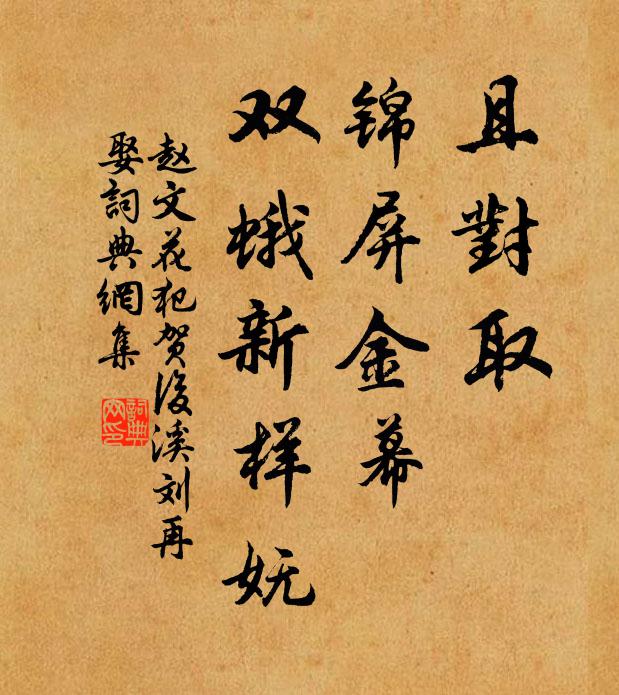 且對取
锦屏金幕
双蛾新样妩
赵文花犯贺後溪刘再
娶詞典網集
詞典
网印